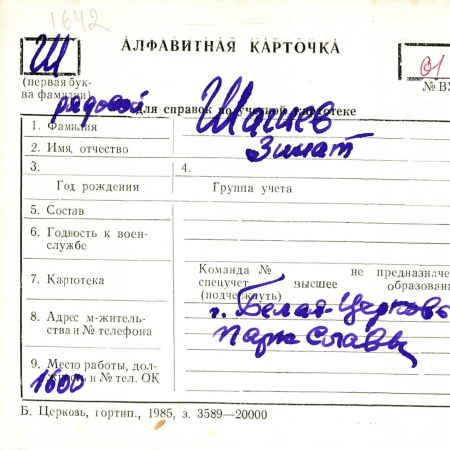 1642
Ш
АЛФАВИТНАЯ КАРТОЧКА
91
(первая бук-
ва фамилии)
№ ВУ
рядовой
для справок по учетной картотеке
1. Фамилия Шашев
2. Имя, отчество Зинат
3. 4.
Год рождения Группа учета
5. Состав
6. Годность к воен-
службе
7. Картотека Команда № не предназначе
спецучет, высшее образован
(подчеркнуть)
8. Адрес м-житель-
ства и № телефона
г. Белая-Церковь
парк Славы
9. Место работы, дол-
жность и № тел. ОК
1600
Б. Церковь, гортип., 1985, з. 3589—20000